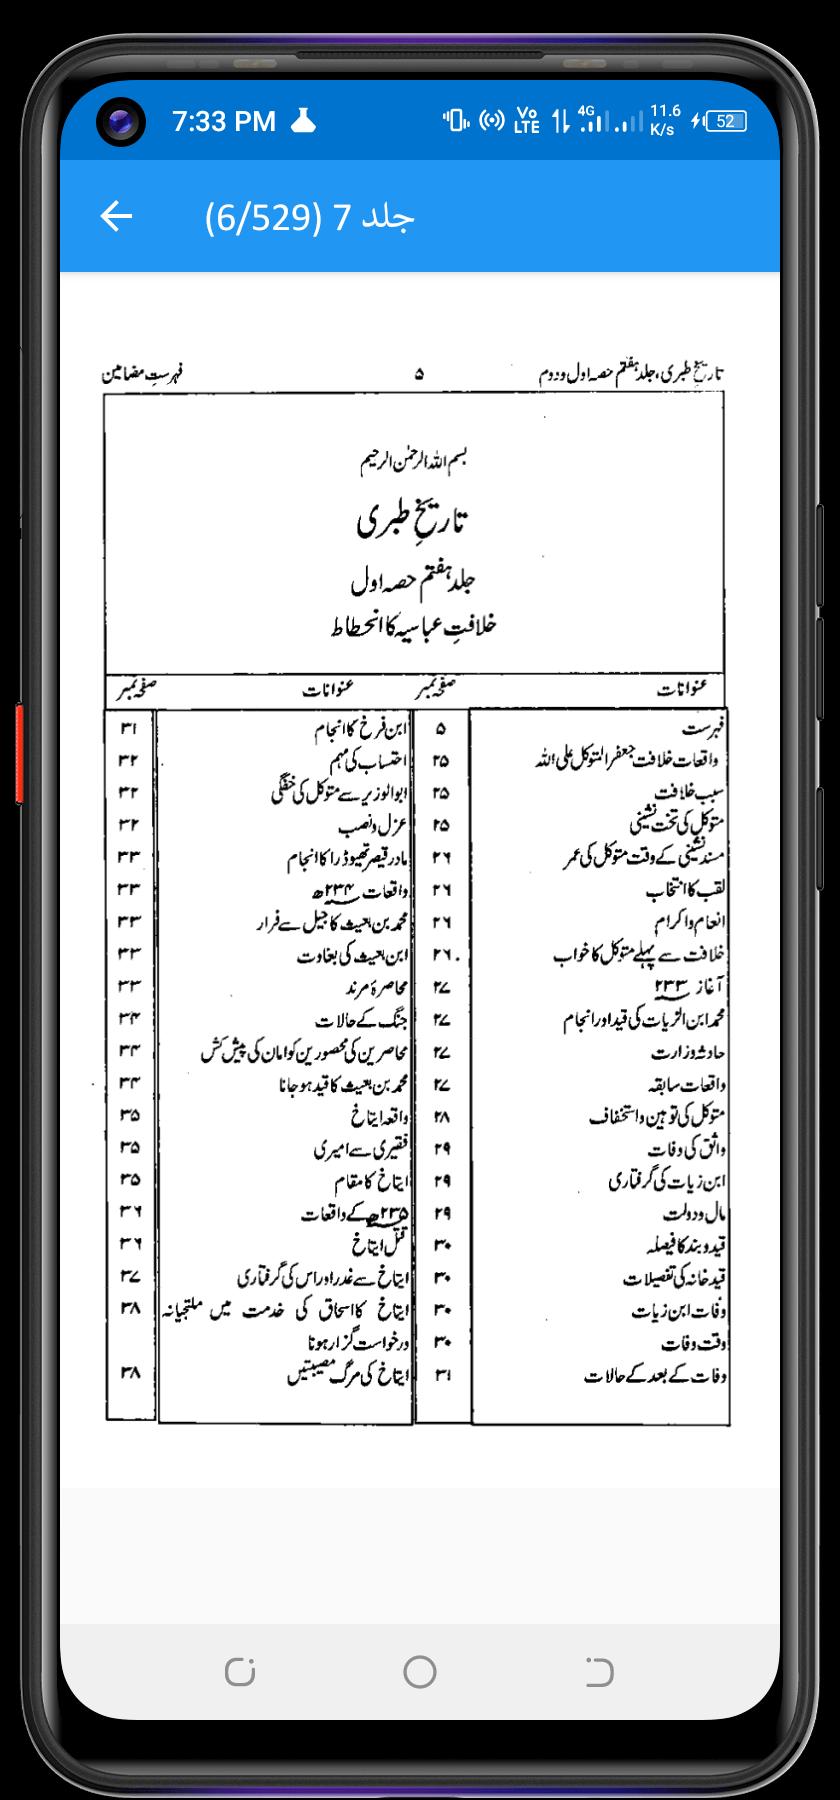 7:33 PM
4G
Vo LTE
11.6 K/s
52
جلد 7 (6/529)
تاریخ طبری، جلد ہفتم حصہ اول و دوم ۵ فہرست مضامین
بسم اللہ الرحمٰن الرحیم
تاریخِ طبری
جلد ہفتم حصہ اول
خلافتِ عباسیہ کا انحطاط
عنوانات صفحہ نمبر عنوانات صفحہ نمبر
فہرست ۵
واقعات خلافت جعفر المتوکل علی اللہ ۲۵
سبب خلافت ۲۵
متوکل کی تخت نشینی ۲۵
مسند نشینی کے وقت متوکل کی عمر ۲۶
لقب کا انتخاب ۲۶
انعام و اکرام ۲۶
خلافت سے پہلے متوکل کا خواب ۲۶
آغاز ۲۳۳ ۲۷
محمد ابن الزیات کی قید اور انجام ۲۷
حادثہ وزارت ۲۷
واقعات سابقہ ۲۷
متوکل کی توہین و استخفاف ۲۸
واثق کی وفات ۲۹
ابن زیات کی گرفتاری ۲۹
مال و دولت ۲۹
قید و بند کا فیصلہ ۳۰
قید خانہ کی تفصیلات ۳۰
وفات ابن زیات ۳۰
وقت وفات ۳۰
وفات کے بعد کے حالات ۳۱
ابن فرخ کا انجام ۳۱
احتساب کی مہم ۳۲
ابوالوزیر سے متوکل کی خفگی ۳۲
عزل و نصب ۳۲
مادر قیصر تھیوڈرا کا انجام ۳۳
واقعات ۲۳۴ھ ۳۳
محمد بن بعیث کا جیل سے فرار ۳۳
ابن بعیث کی بغاوت ۳۳
محاصرۂ مرند ۳۳
جنگ کے حالات ۳۴
محاصرین کی محصورین کو امان کی پیش کش ۳۴
محمد بن بعیث کا قید ہو جانا ۳۴
واقعہ ایتاخ ۳۵
فقیری سے امیری ۳۵
ایتاخ کا مقام ۳۵
۲۳۵ھ کے واقعات ۳۶
قتل ایتاخ ۳۶
ایتاخ سے غدر اور اس کی گرفتاری ۳۷
ایتاخ کا اسحاق کی خدمت میں ملتجیانہ ۳۸
درخواست گزار ہونا
ایتاخ کی مرگ مصیبتیں ۳۸